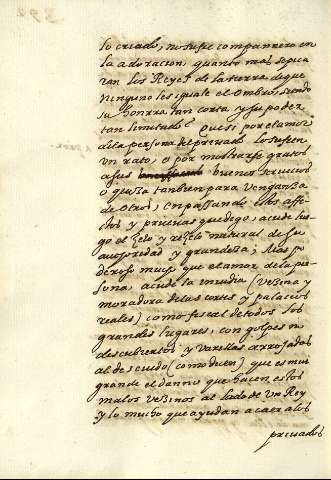 lo criado, no sufre compañero en
la adoracion, quanto mas se pica
ran los Reyes de la tierra de que
ninguno les iguale el ombro, siendo
su honrra tan corta y su poder
tan limitado? Que si por el amor
de la persona del priuado lo sufren
un rato, o por mostrarse gratos
a sus buenos seruicios
o quiza tanbien para venganza
de otros, en passando estos affe
ctos y prueuas que digo, acude lue
go el zelo y rezelo natural de su
authoridad y grandeza; Mas po
deroso mucho que el amor de la per
sona, acude la inuidia (vezina y
moradora de las cortes y palacios
reales) como fiscal de todos los
grandes lugares, con golpes
descubiertos y varillas arrojadas
al descuido (como dicen) que es muy
grande el danno que hacen estos
malos vezinos al lado de un Rey
y lo mucho que ayudan a caer a los
priuados